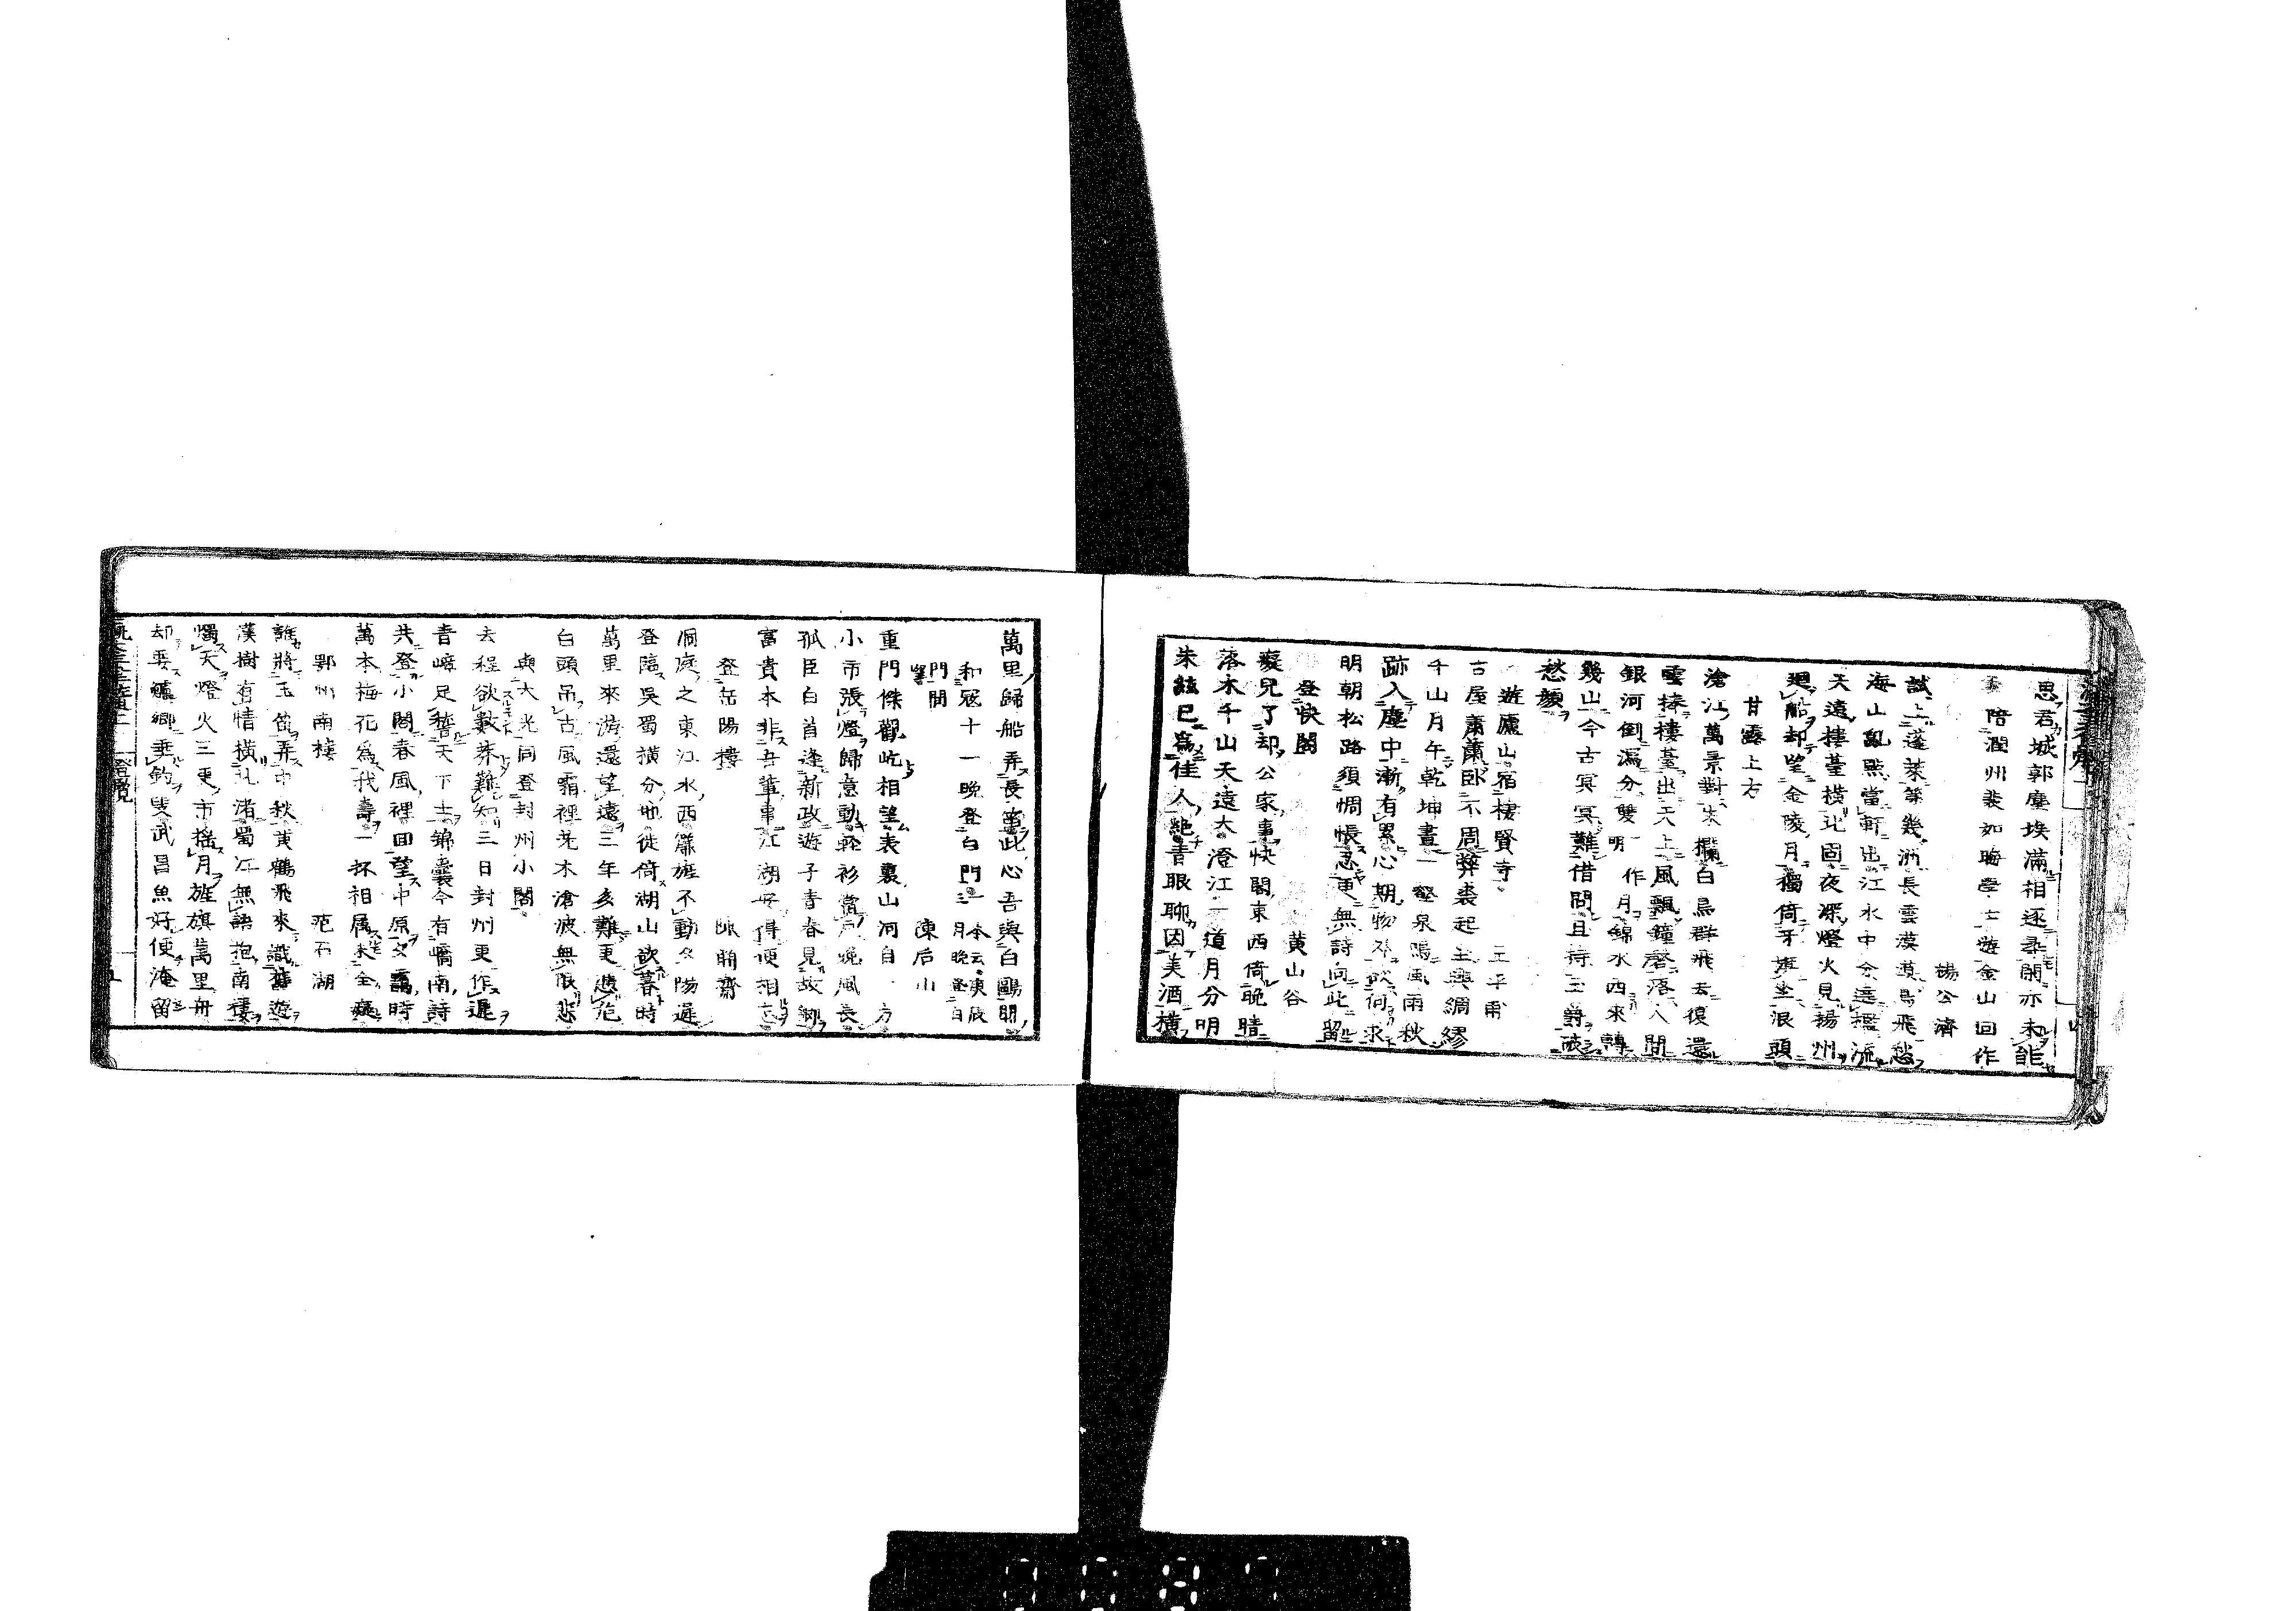 思君城郭塵埃滿相逐尋閒亦未能
陪潤州裴如晦學士遊金山回作
楊公濟
試上蓬萊第幾洲長雲漠漠鳥飛愁
海山亂點當軒出江水中分遶檻流
天遠樓臺橫北固夜深燈火見揚州
廻船却望金陵月獨倚牙旗坐浪頭
甘露上方
滄江萬景對朱欄白鳥群飛去復還
雲捧樓臺出天上風飄鐘磬落人間
銀河倒瀉分雙一作明月錦水西來轉
幾山今古冥冥難借問且持玉爵破
愁顏
遊廬山宿棲賢寺 王平甫
古屋蕭蕭臥不周弊裘起坐興綢繆
千山月午乾坤晝一壑泉鳴風雨秋
跡入塵中漸有累心期物外欲何求
明朝松路須惆悵忍更無詩向此留
登快閣 黃山谷
癡兒了却公家事快閣東西倚晚晴
落木千山天遠大澄江一道月分明
朱絃已爲佳人絶青眼聊因美酒橫
萬里歸船弄長笛此心吾與白鷗盟
和寇十一晚登白門
門間
陳后山
重門傑觀屹相望表裏山河自一方
小市張燈歸意動輕衫當戶晚風長
孤臣白首逢新政遊子青春見故鄉
富貴本非吾輩事江湖安得便相忘
登岳陽樓 陳簡齋
洞庭之東江水西簾旌不動夕陽遲
登臨吳蜀橫分地徙倚湖山欲暮時
萬里來游還望遠三年多難更憑危
白頭吊古風霜裡老木滄波無限悲
與大光同登封州小閣
去程欲數莽難知三日封州更作遲
青嶂足稽天下士錦囊今有嶠南詩
共登小閣春風裡回望中原夕靄時
萬本梅花爲我壽一杯相属未全癡
鄂州南樓 范石湖
誰將玉笛弄中秋黃鶴飛來識舊遊
漢樹有情橫北渚蜀江無語抱南樓
燭天燈火三更市搖月旌旗萬里舟
却要鱸鄉垂釣叟武昌魚好便淹留
登覽